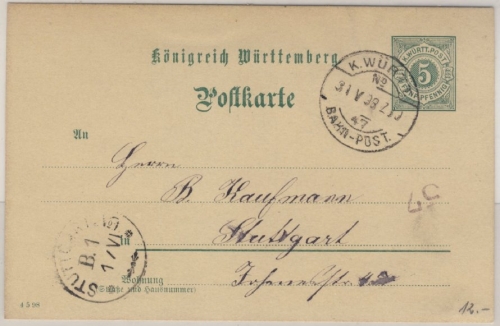 Königreich Württemberg
Postkarte
K. WÜRTT. POST
5
FÜNF PFENNIG
K. WÜRTT.
No
31 V 98 Z
47
BAHN-POST.
An
Herrn
B. Kaufmann
57
STUTTGART No1
B. 1
1/VI
in Stuttgart
Wohnung
(Straße und Hausnummer)
4 5 98
12.-